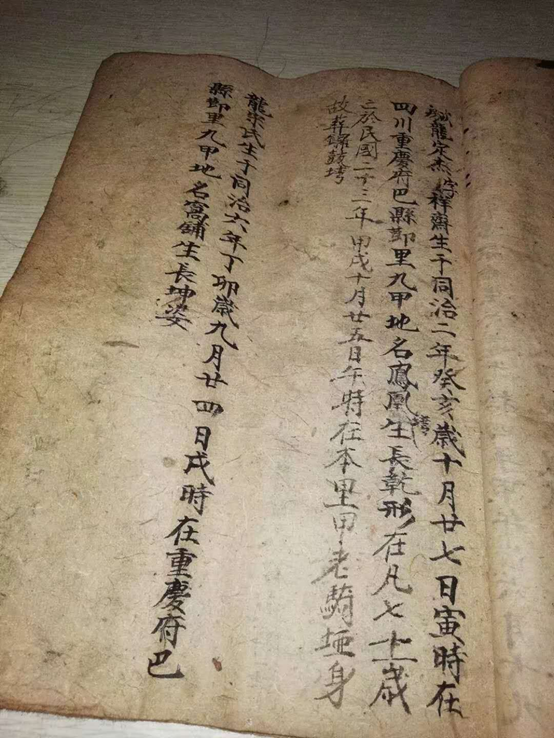 龍定杰字祥齋生于同治二年癸亥歲十月廿七日寅時在
四川重慶府巴縣鄞里九甲地名鳳凰塆生長乾形在凡七十二歲
於民國二十三年甲戌十月廿五日午時在本里甲老騎埡身
故葬鑼鼓塆
龍宗氏生于同治六年丁卯歲九月廿四日戌時在重慶府巴
縣鄞里九甲地名窩鋪生長坤姿